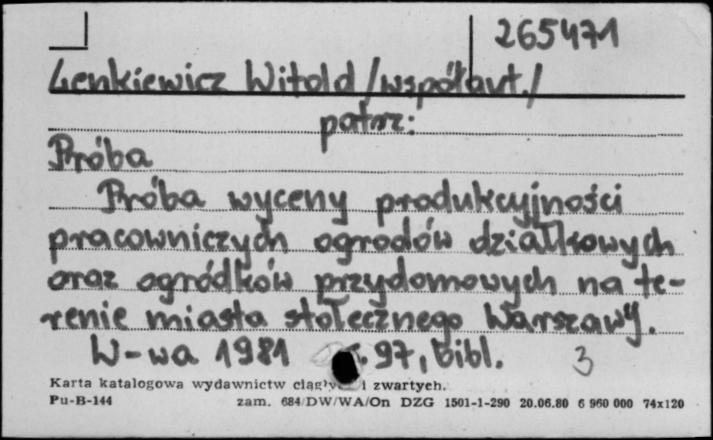 265471
Lenkiewicz Witold /współaut./
patrz:
Próba
Próba wyceny produkcyjności
pracowniczych ogrodów działkowych
oraz ogródków przydomowych na te-
renie miasta stołecznego Warszawy.
W-wa 1981 s. 97, bibl. 3
Karta katalogowa wydawnictw ciągłych i zwartych.
Pu-B-144 zam. 684/DW/WA/On DZG 1501-1-290 20.06.80 6 960 000 74x120